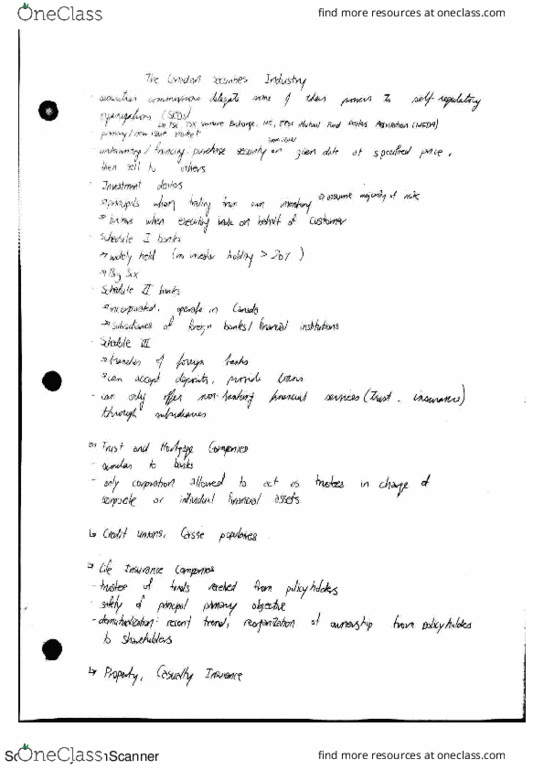 OneClass
find more resources at oneclass.com
The Canadian Securities Industry
- securities commissions delegate some of their powers to self regulatory
organizations (SROs)
primary/new issue market
- underwriting/financing: purchase security on given date at specified price,
then sell to others
- Investment dealers
principals when trading their own assume majority of risk
brokers when executing trade on behalf of customer
- Schedule I banks
widely held (no investor holding > 20%)
Big Six
- Schedule II banks
incorporated, operate in Canada
subsidiaries of foreign banks/financial institutions
- Schedule III
branches of foreign banks
can accept deposits, provide loans
- can only offer non-banking financial services (Trust, insurance)
through subsidiaries
Trust and Mortgage Companies
- similar to banks
- only corporation allowed to act as trustees in charge of
corporate or individual financial assets
Credit unions, Caisse populaires
Life Insurance Companies
- trustee of funds received from policyholders
- safety of principal primary objective
- demutualization: recent trend, reorganization of ownership from policyholders
to shareholders
Property, Casualty Insurance
OneClass
Scanner
find more resources at oneclass.com